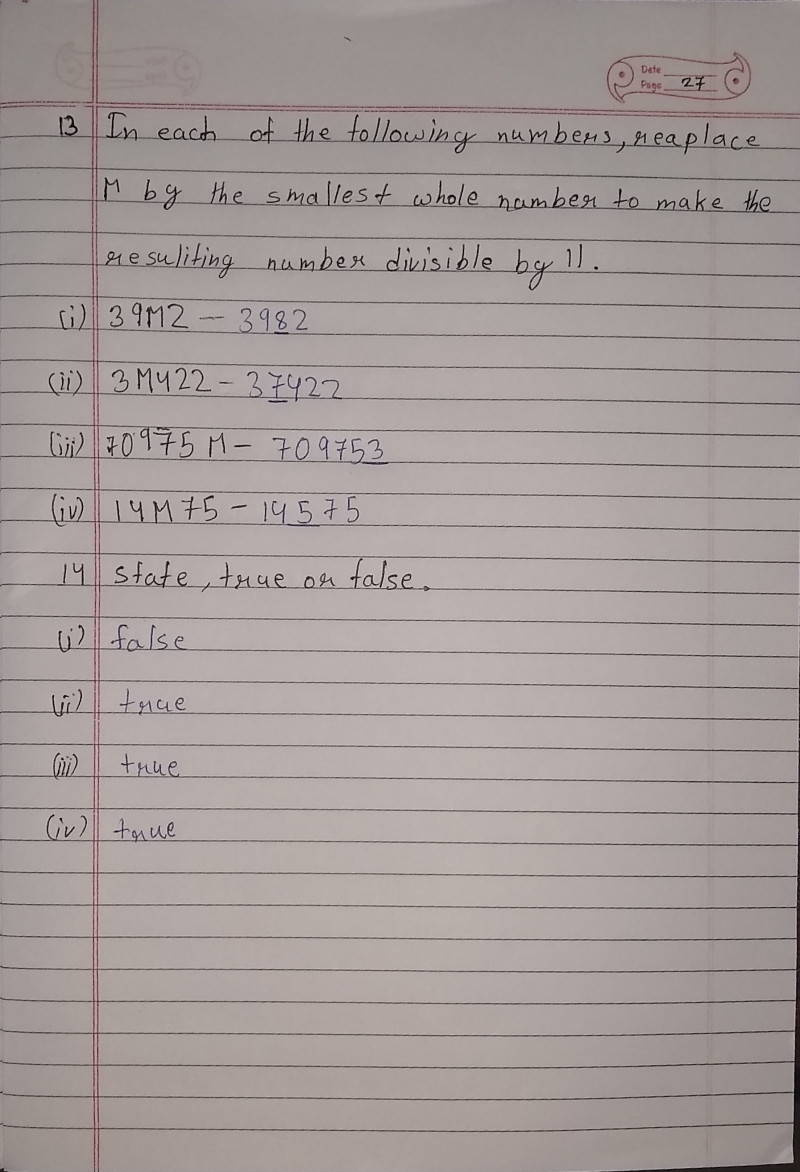 Date
Page 27
13 In each of the following numbers, reaplace
M by the smallest whole number to make the
resuliting number divisible by 11.
(i) 39M2 – 3982
(ii) 3M422 – 37422
(iii) 70975M – 709753
(iv) 14M75 – 14575
14 state, true or false.
(i) false
(ii) true
(iii) true
(iv) true